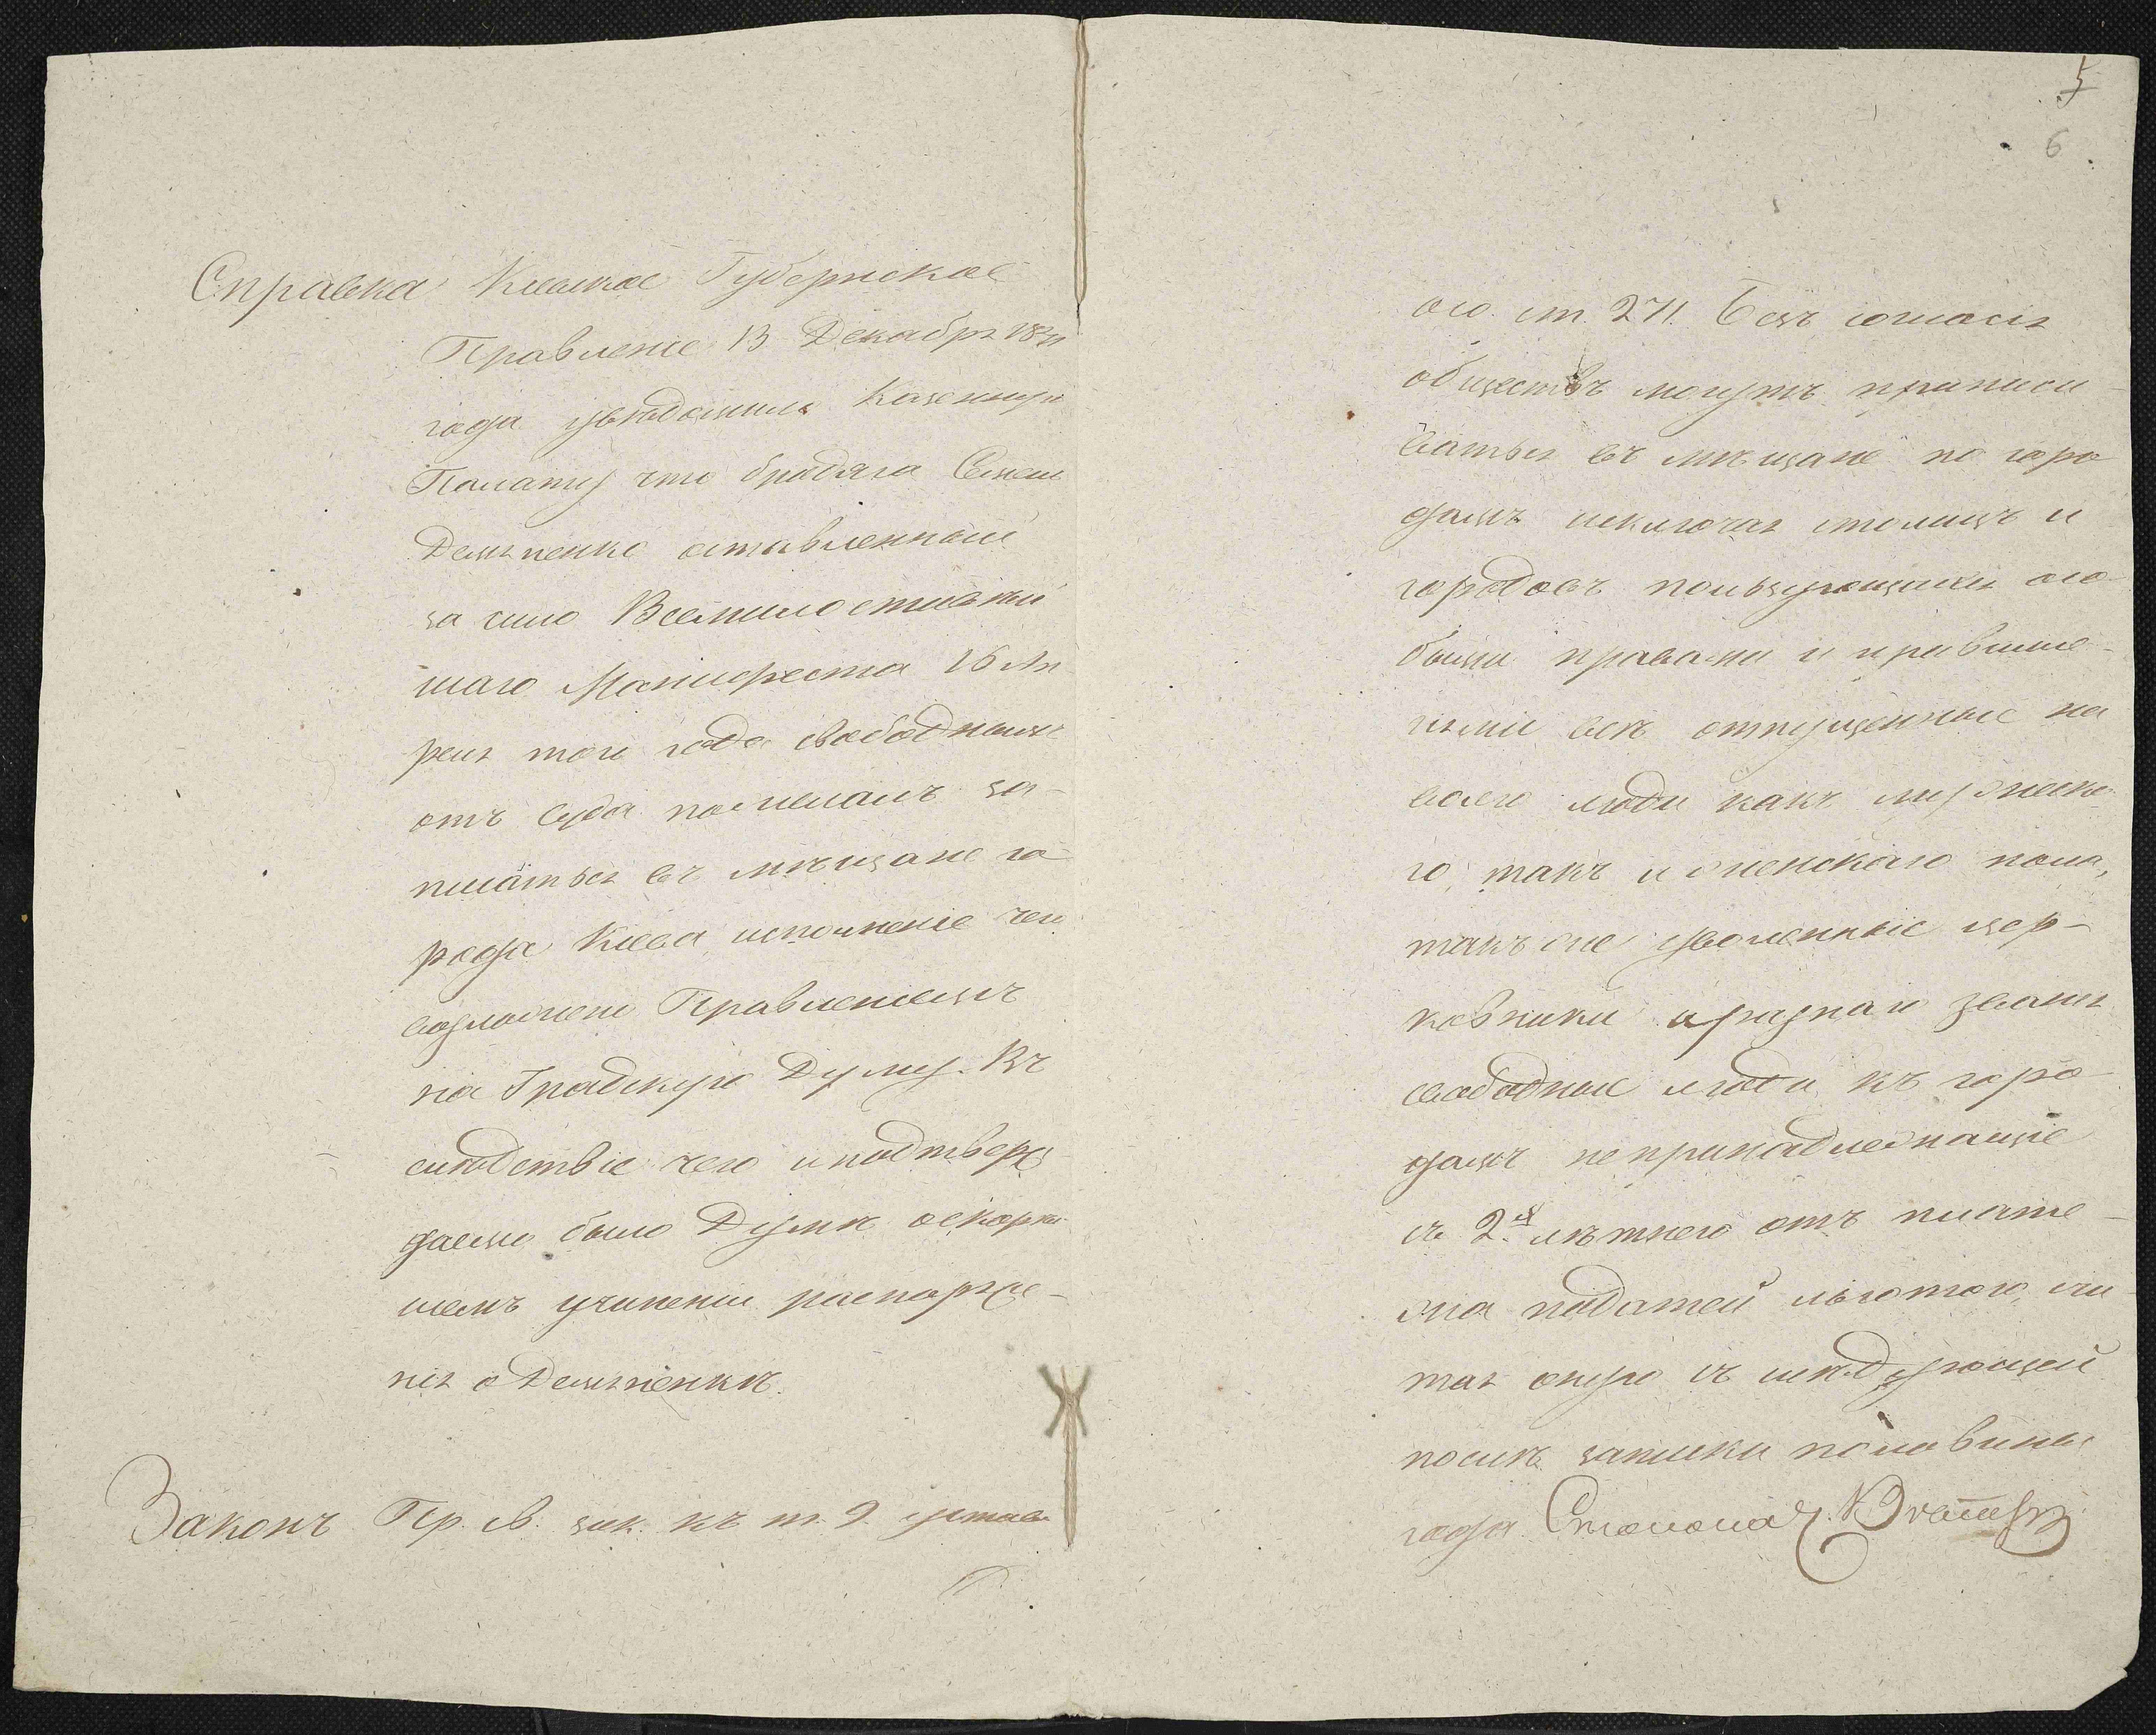 Справка Киевское Губернское
Правленіе 13 Декабря 1841
года увѣдомило Казенную
Палату что бродяга Семенъ
Демьяненко оставленный
за силою Всемилостивѣй
шаго Манифеста 16 Ап
реля того года свободнымъ
отъ суда пожелалъ за-
писаться въ мѣщане го
рода Кіева исполненіе чего
возложено Правленіемъ
на Градскую Думу. Въ
слѣдствіе чего и подтверж
даемо было Думѣ о скорѣй
шемъ учиненіи распоряже-
нія о Демьяненкѣ.
Законъ Пр. Св. зак. къ т. 9. устав
5
6
ого. ст. 271. Безъ согласія
обществъ могутъ приписы-
ваться въ мѣщане по горо
дамъ исключая столицъ и
городовъ пользующихся осо
быми правами и привиле-
гіями всѣ отпущенные на
волю люди какъ мужеска
го, такъ и женскаго пола,
такъ же уволенные цер-
ковники и разнаго званія
свободные люди къ горо
дамъ не принадлежащіе
съ 2х лѣтнею отъ плате-
жа податей льготою, счи
тая оную съ слѣдующей
послѣ записки половины
года Столонач.